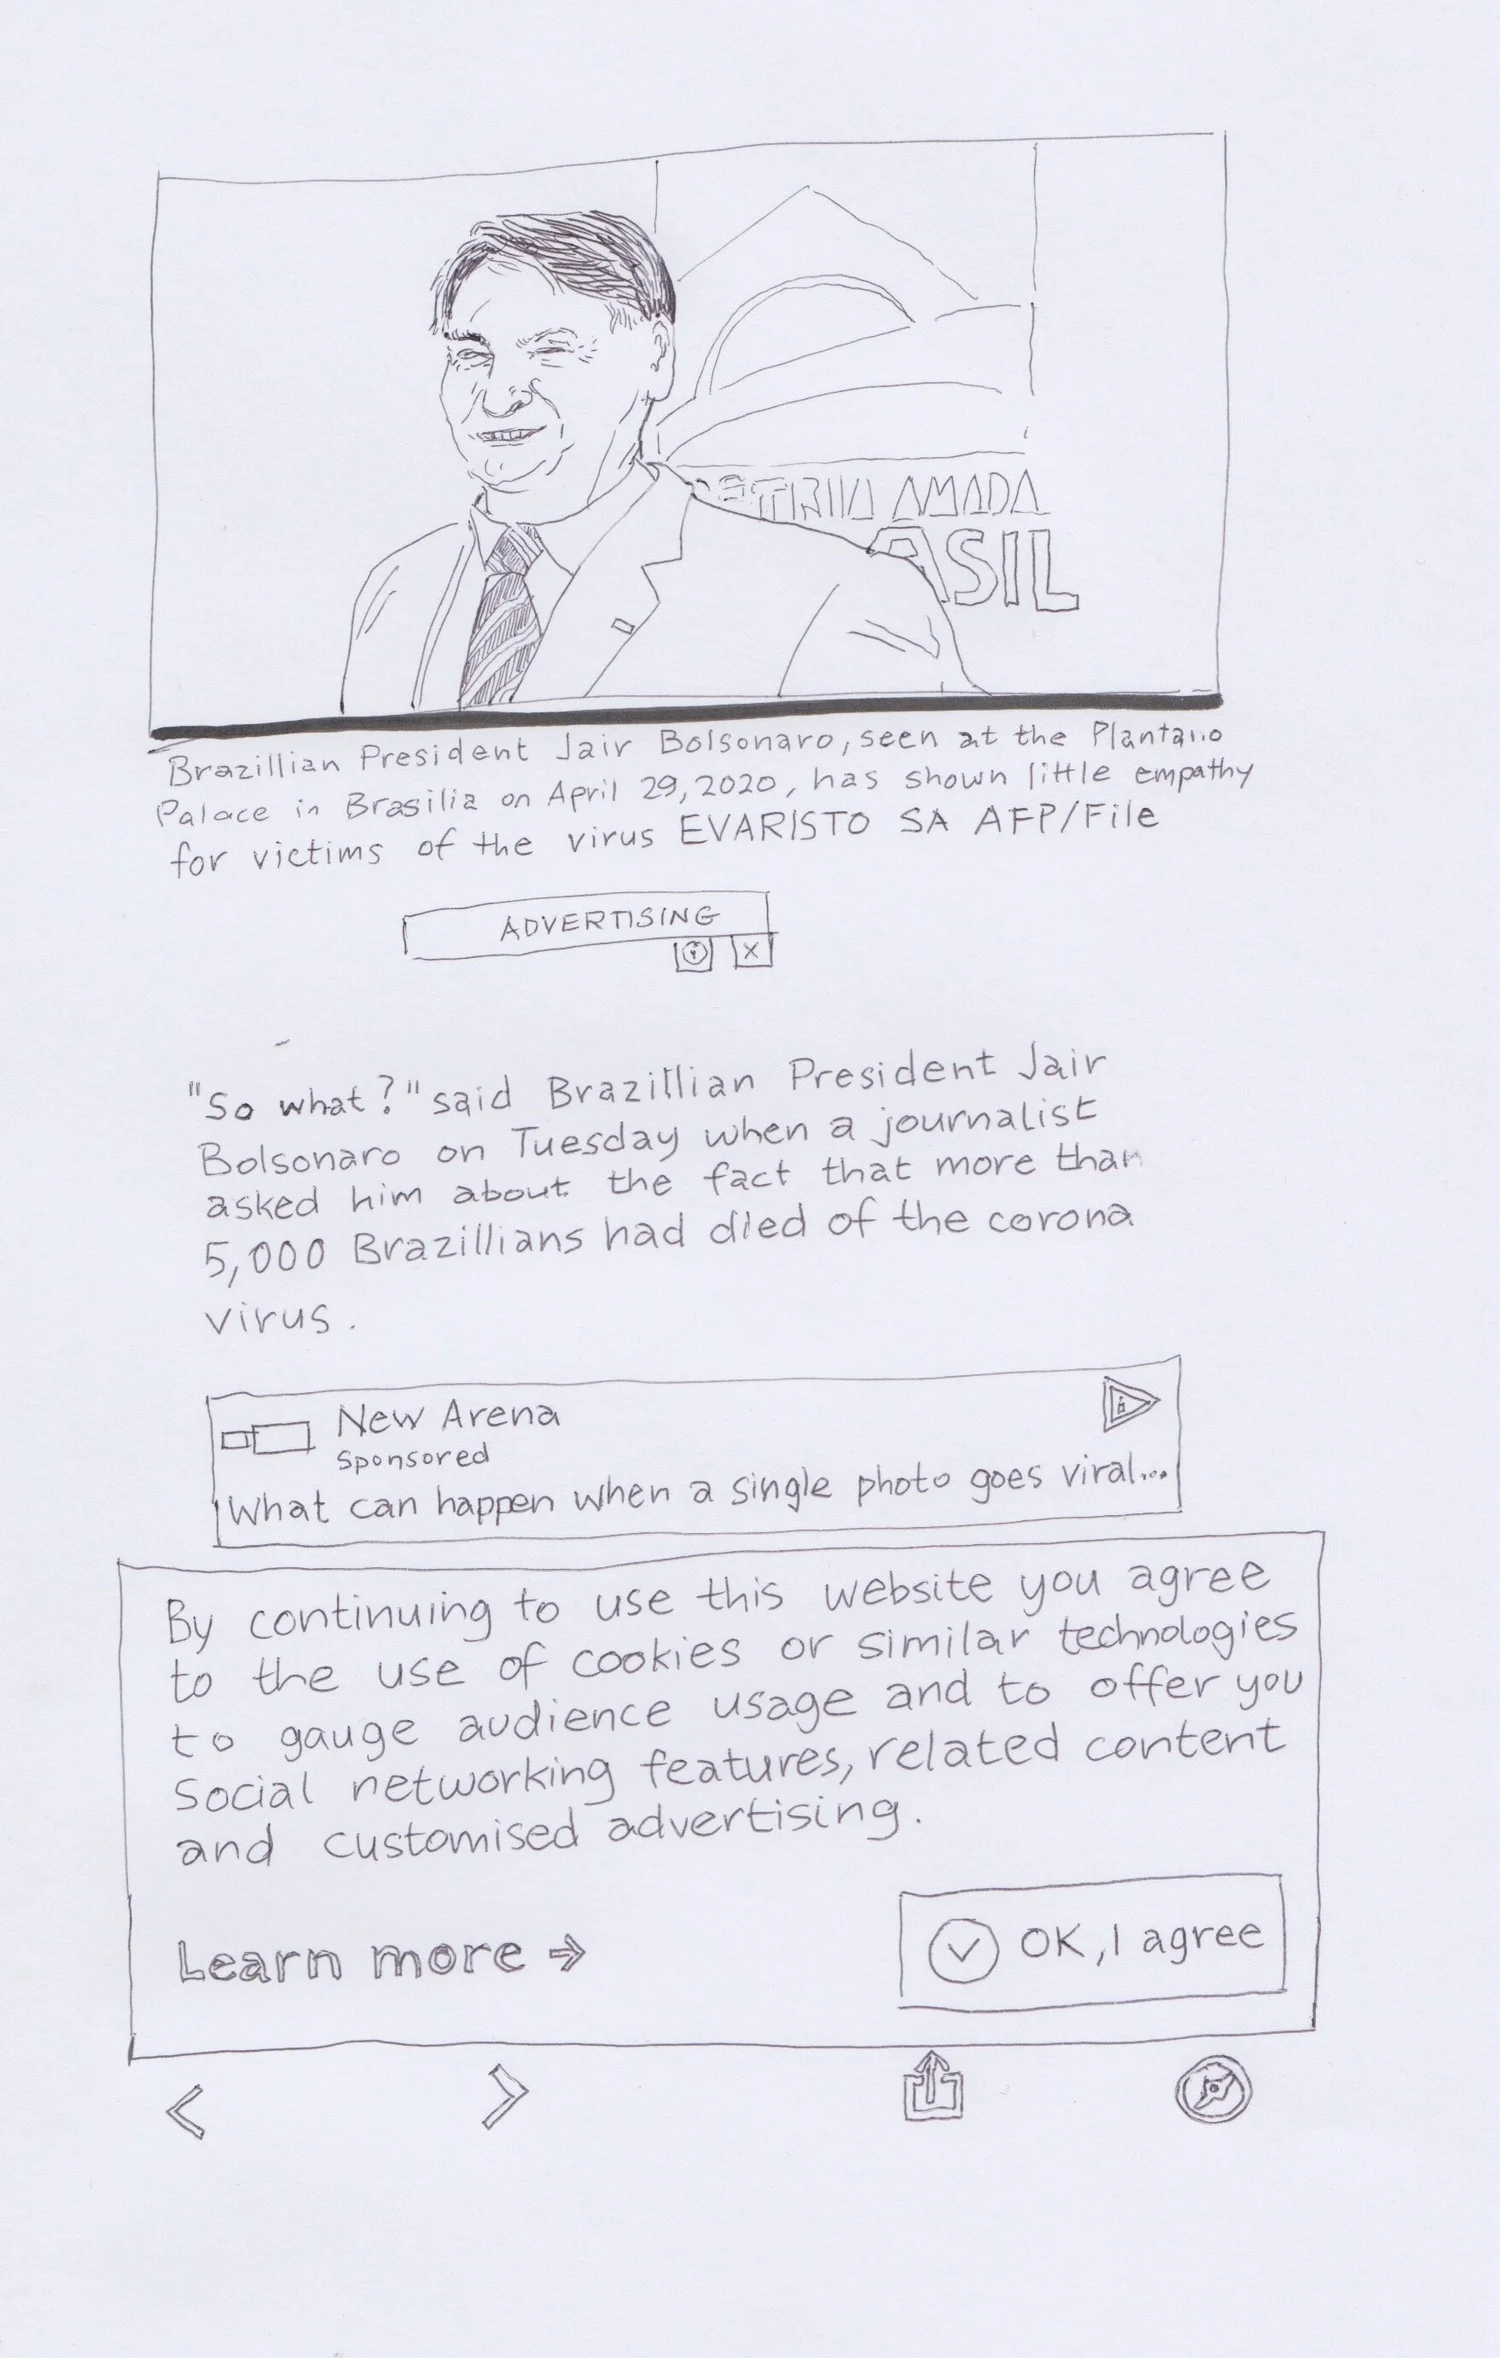 AMADA
ASIL
Brazillian President Jair Bolsonaro, seen at the Plantano
Palace in Brasilia on April 29, 2020, has shown little empathy
for victims of the virus EVARISTO SA AFP/File
ADVERTISING
X
"So what?" said Brazillian President Jair
Bolsonaro on Tuesday when a journalist
asked him about the fact that more than
5,000 Brazillians had died of the corona
virus.
New Arena
Sponsored
What can happen when a single photo goes viral...
By continuing to use this website you agree
to the use of cookies or similar technologies
to gauge audience usage and to offer you
Social networking features, related content
and customised advertising.
Learn more →
OK, I agree